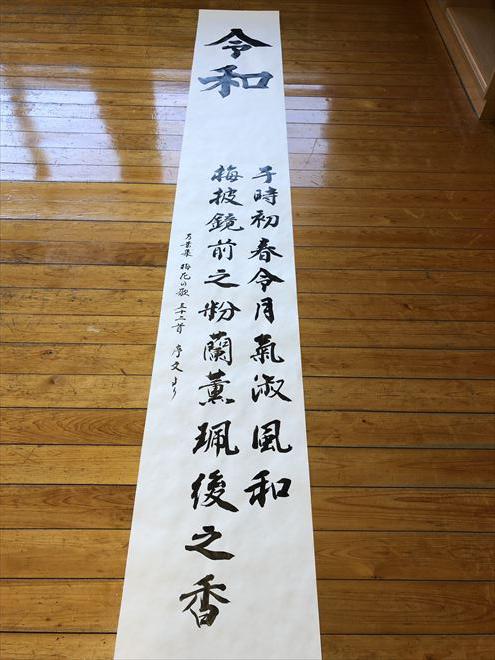 令和
于時初春令月氣淑風和
梅披鏡前之粉蘭薫珮後之香
万葉集 梅花の歌 三十二首 序文より